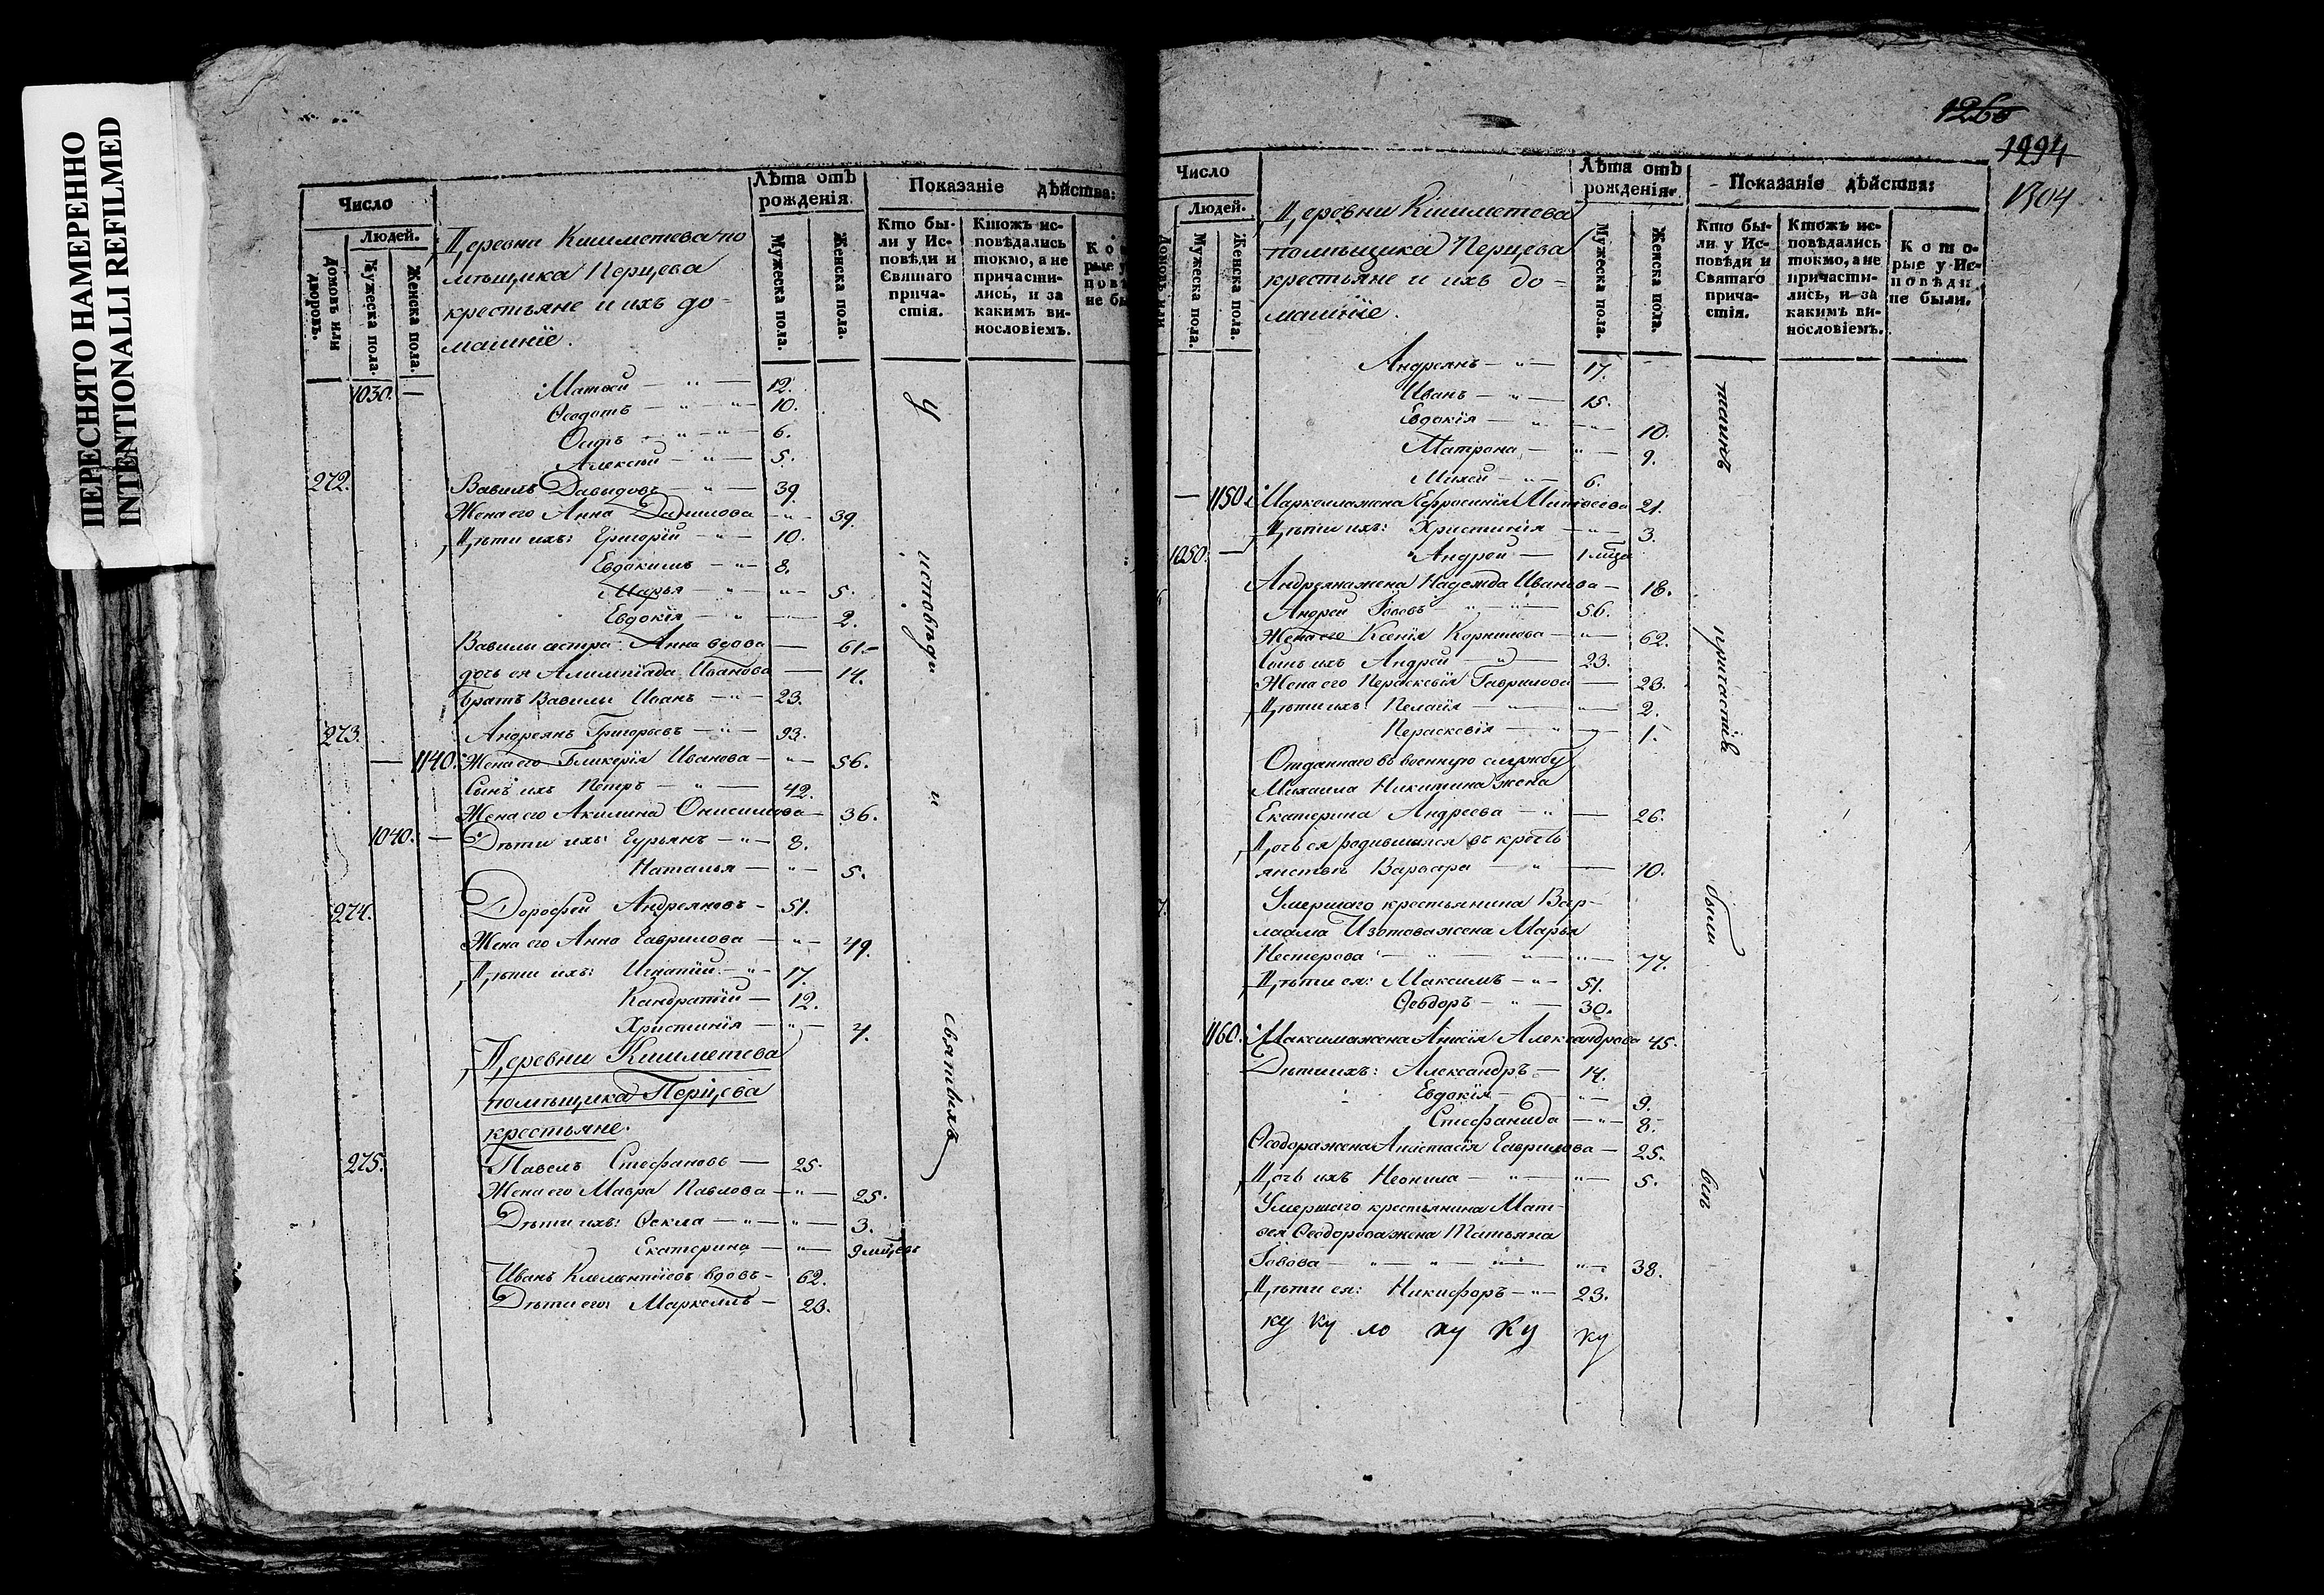 ПЕРЕСНЯТО НАМЕРЕННО
INTENTIONALLI REFILMED
Число
Людей.
Домовъ или дворовъ.
Мужеска пола.
Женска пола.
Деревни Кишметева по
мѣщика Перцева
крестьяне и ихъ до-
машніе.
Лѣта отъ рожденія.
Мужеска пола.
Женска пола.
Показаніе дѣйства:
Кто бы-
ли у Ис-
повѣди и
Святаго
прича-
стія.
Ктожъ ис-
повѣдались
токмо, а не
причасти-
лись, и за
какимъ ви-
нословіемъ.
1030. — Матвей — " — 12.
Ѳеодотъ — " — " 10.
— " — " 6.
Алексѣй — " — 5.
272. Вавилъ Давыдовъ — " — 39.
Жена его Анна Данилова — " — 39.
Дѣти ихъ: Григорій — " — 10.
Евдокимъ — " — 8.
Марья — " — " — 5.
Евдокія — " — 2.
Вавилы сестра Анна вдова — 61.
дочь ея Алимпіада Иванова — 14.
Братъ Вавилы Иванъ — " — 23.
273. Андреянъ Григорьевъ — " — 93.
— 1140. Жена его Гликерія Иванова — " — 56.
Сынъ ихъ Петръ — " — 42.
Жена его Акилина Онисимова — 36.
1040. — Дѣти ихъ: Гурьянъ — " — 8.
Наталья — " — 5.
274. Дорофей Андреяновъ — 51.
Жена его Анна Гаврилова — " — 49.
Дѣти ихъ: Игнатій — " — 17.
Кандратій — 12.
Христинія — " — 4.
Деревни Кишметева
помѣщика Перцева
крестьяне.
275. Павелъ Стефановъ — 25.
Жена его Мавра Павлова — " — 25.
Дѣти ихъ: Ѳекла — " — " — 3.
Екатерина — " — 9 мцевъ
Иванъ Клементіевъ вдовъ — 62.
Дѣти его: Маркелъ — 23.
У исповѣди и святыхъ
1260
1294
1304
Число
Людей.
Домовъ или
Мужеска пола.
Женска пола.
Деревни Кишметева
помѣщика Перцева
крестьяне и ихъ до-
машніе.
Лѣта отъ рожденія.
Мужеска пола.
Женска пола.
Показаніе дѣйства:
Кто бы-
ли у Ис-
повѣди и
Святаго
прича-
стія.
Ктожъ ис-
повѣдались
токмо, а не
причасти-
лись, и за
какимъ ви-
нословіемъ.
Кото-
рые у Ис-
повѣди
не были.
Андреянъ — " — 17.
Иванъ — " — 15.
Евдокія — " — " — 10.
Матрона — " — 9.
Михей — " — 6.
— 1150. Маркела жена Ефросинія Матвеева 21.
Дѣти ихъ: Христинія — " — 3.
1050. — Андрей — 1 мца
Андреяна жена Надежда Иванова — 18.
Андрей Іововъ — " — " — 56.
Жена его Ксенія Корнилова — " — 62.
Сынъ ихъ Андрей — " — 23.
Жена его Пераскевія Гаврилова — 23.
Дѣти ихъ: Пелагія — " — " — 2.
Пераскевія — " — 1.
Отданнаго въ военную службу
Михаила Никитина жена
Екатерина Андреева — " — 26.
Дочь ея родившаяся въ кресть
янствѣ Варвара — " — 10.
Умершаго крестьянина Вар-
лаама Изотова жена Марья
Нестерова — " — " — " — 77.
Дѣти ея: Максимъ — " — 51.
Ѳеодоръ — " — 30.
1160. Максима жена Анисія Александрова 45.
Дѣти ихъ: Александръ — 14.
Евдокія — " — 9.
Стефанида — " — 8.
Ѳеодора жена Анастасія Гаврилова — 25.
Дочь ихъ Неонила — " — " — 5.
Умершаго крестьянина Мат-
вея Ѳеодорова жена Татьяна
Іовова — " — " — " — 38.
Дѣти ея: Никифоръ — " — 23.
ку ку ло ку ку ку
таинъ причастія были всѣ